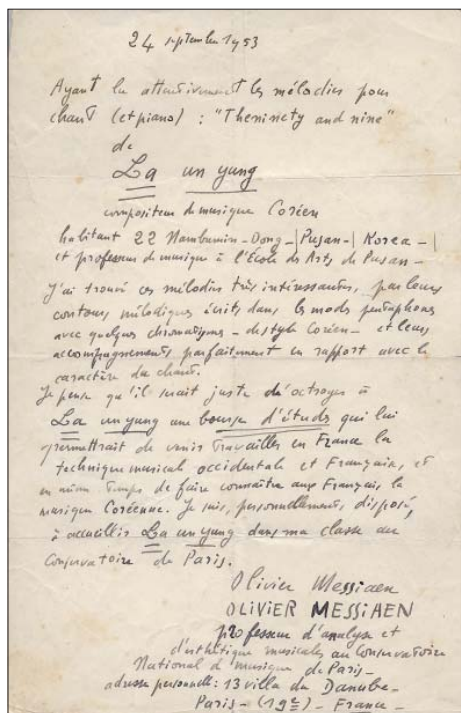 24 septembre 1953
Ayant lu attentivement les mélodies pour
chant (et piano) : "Theninety and nine"
de
La un yung
compositeur de musique Coréen
habitant 22 Nambumin-Dong-|Pusan-| Korea-|
et professeur de musique à l'École des Arts de Pusan-
J'ai trouvé ces mélodies très intéressantes, par leurs
contours mélodiques écrits dans les modes pentaphones
avec quelques chromatismes - de style Coréen - et leurs
accompagnements parfaitement en rapport avec le
caractère du chant.
Je pense qu'il serait juste d'octroyer à
La un yung une bourse d'études qui lui
permettrait de venir travailler en France la
technique musicale occidentale et Française, et
en même temps de faire connaître aux Français la
musique Coréenne. Je suis, personnellement, disposé,
à accueillir La un yung dans ma classe au
Conservatoire de Paris.
Olivier Messiaen
OLIVIER MESSIAEN
professeur d'analyse et
d'esthétique musicales au Conservatoire
National de musique de Paris-
adresse personnelle: 13 villa du Danube-
Paris-(19e)-France-